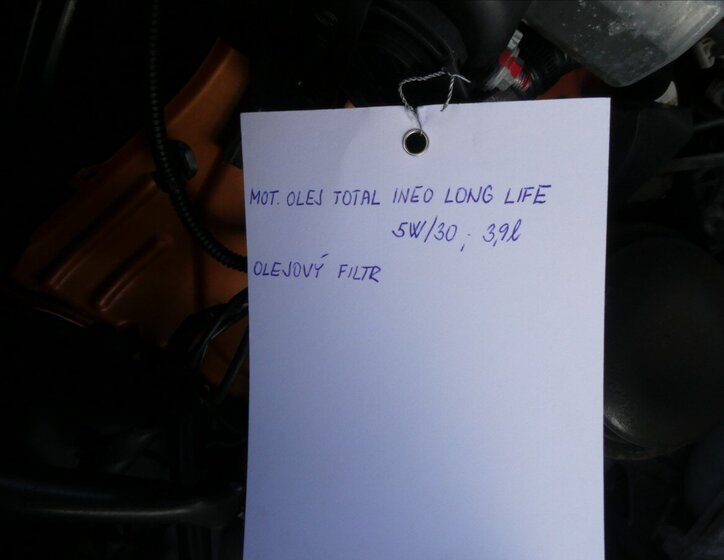 MOT. OLEJ TOTAL INEO LONG LIFE
5W/30, 3,9l
OLEJOVÝ FILTR